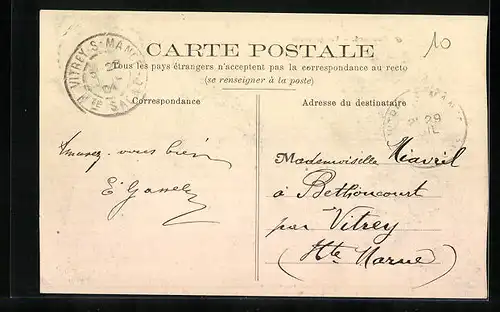 10
CARTE POSTALE
Tous les pays étrangers n'acceptent pas la correspondance au recto
(se renseigner à la poste)
VITREY-S-MANCE
Hte SAÔNE
Correspondance
Adresse du destinataire
29
Amusez-vous bien
Mademoiselle
à Bethoncourt
par Vitrey
(Hte Marne)